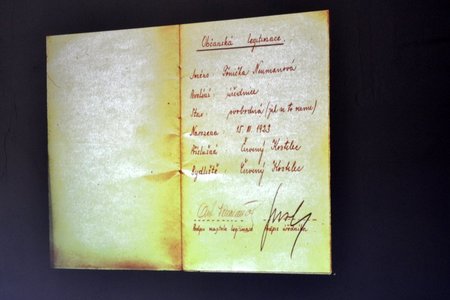 Občanská legitimace
Jméno Tónička Neumanová
Povolání úřednice
Stav svobodná
Narozena 15. III. 1923
Příslušná Červený Kostelec
Bydliště Červený Kostelec
Podpis majitele legitimace podpis úředníka